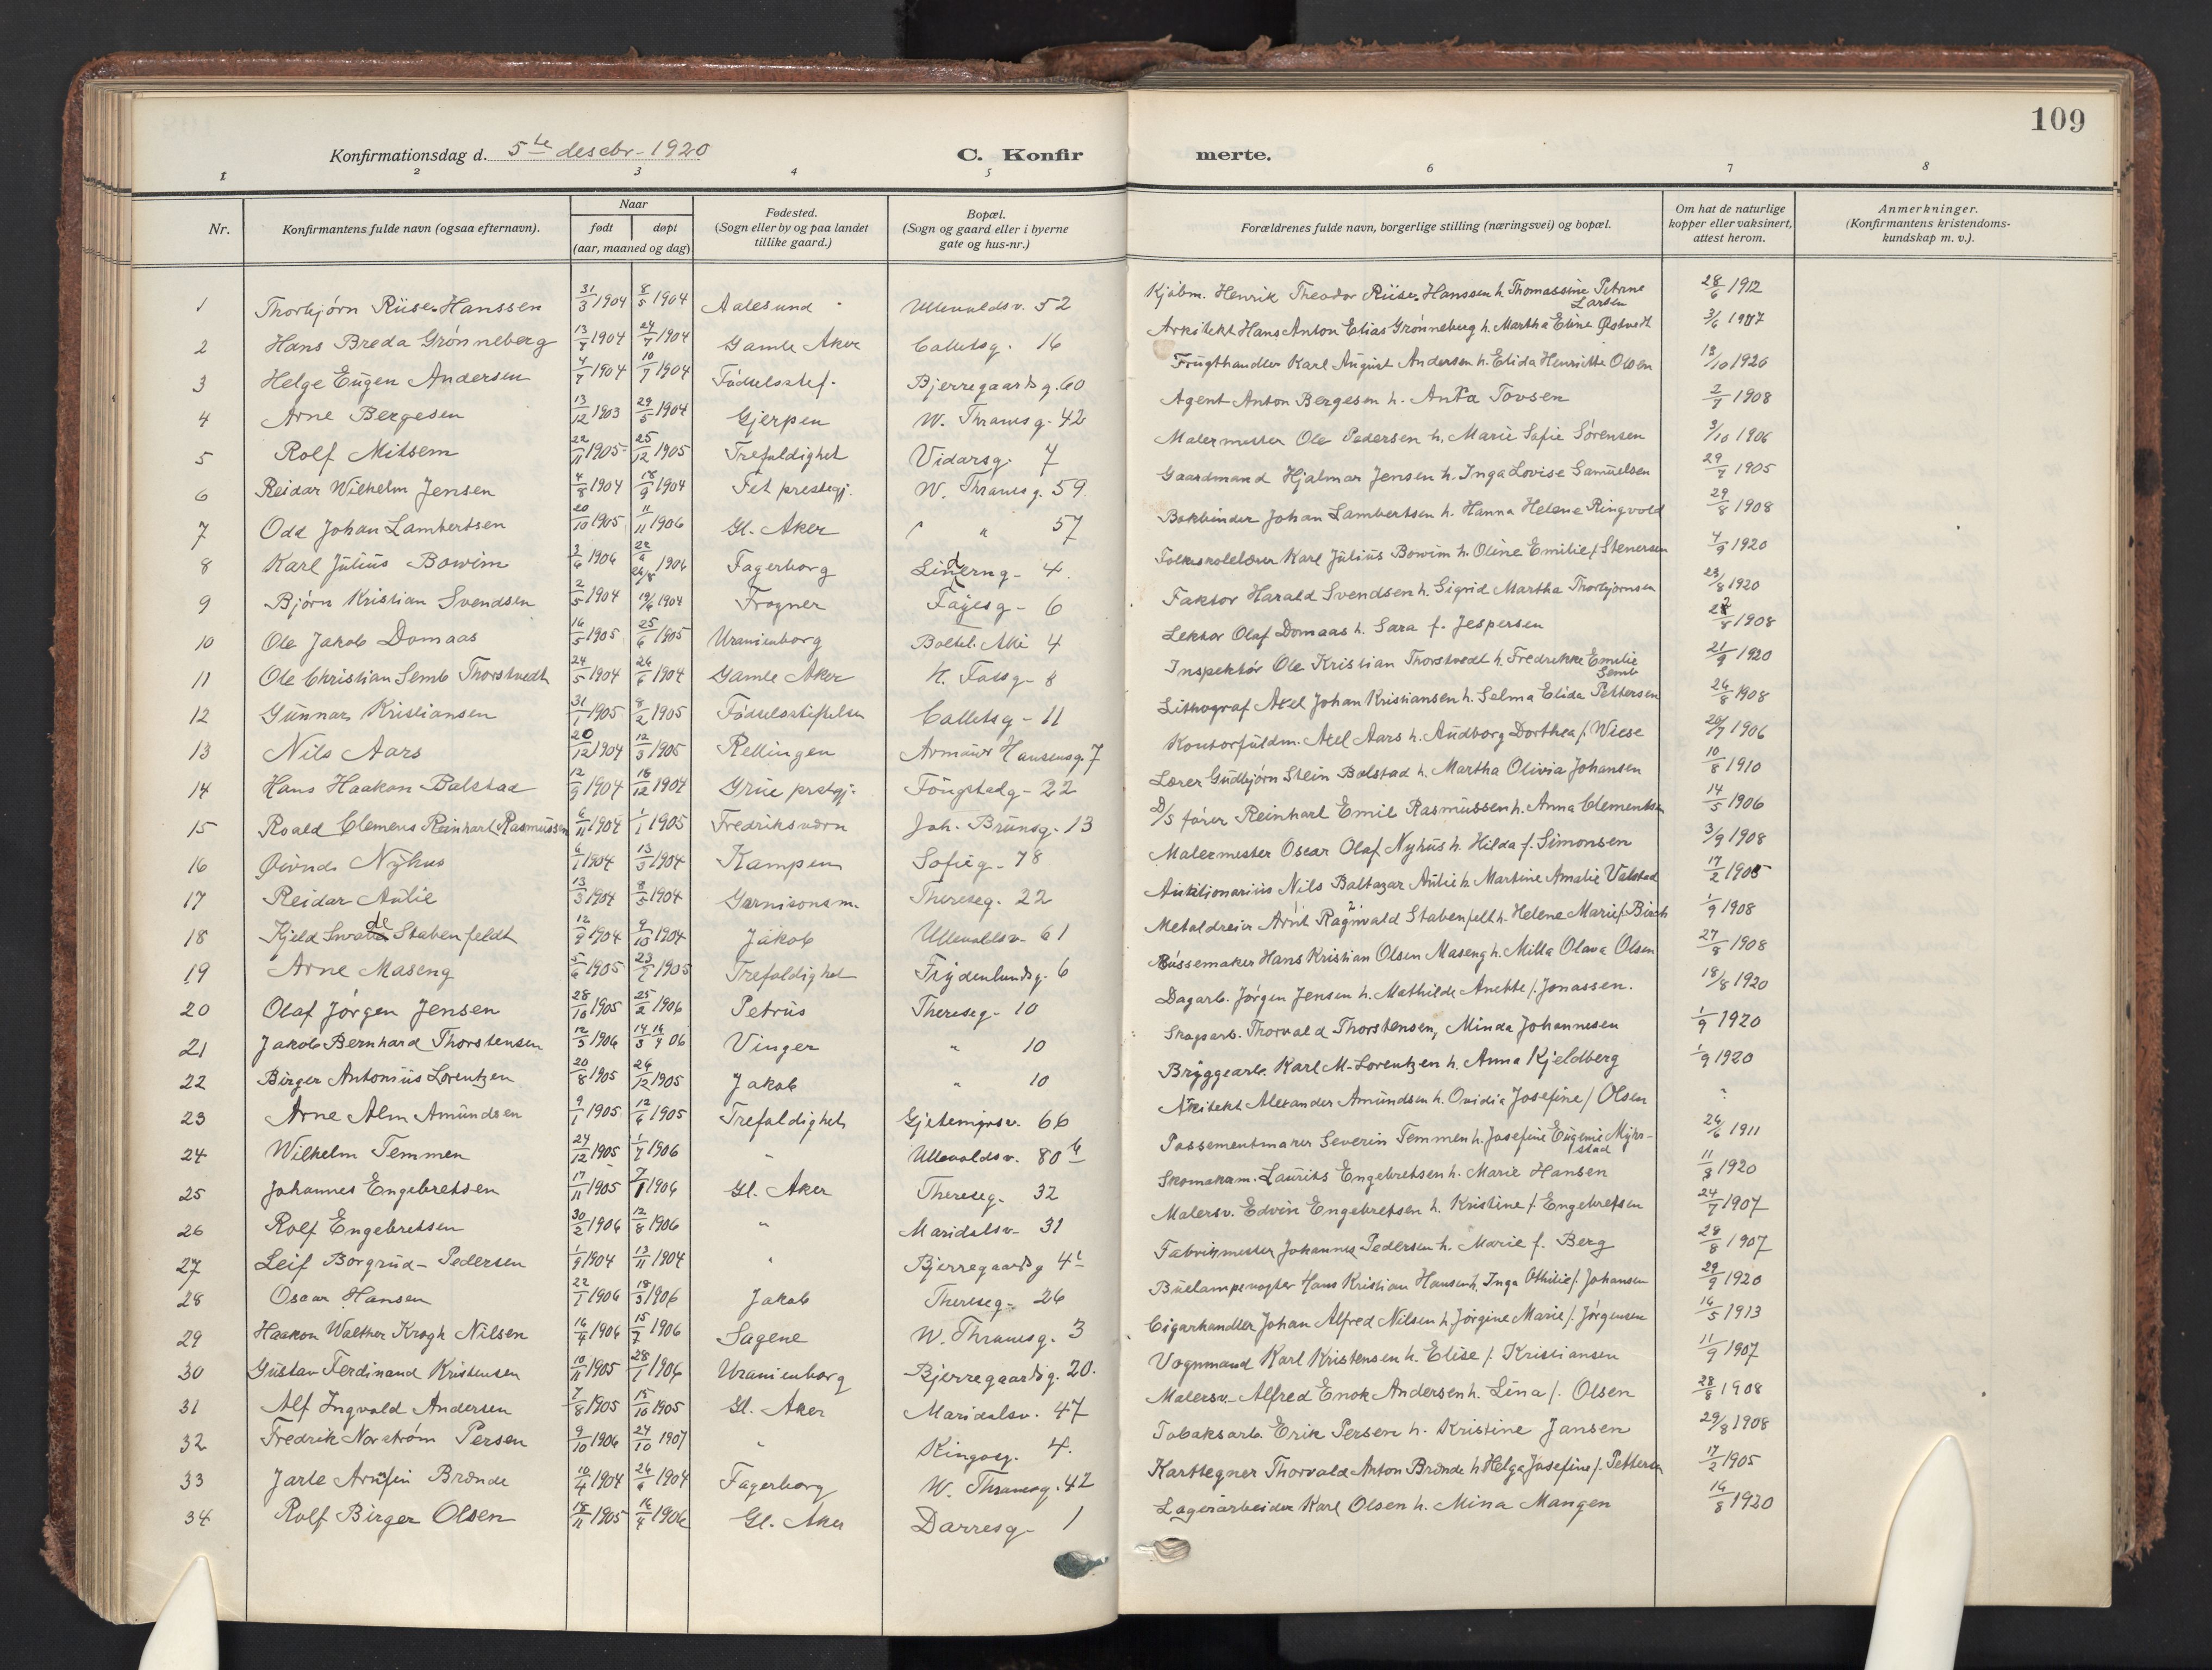 109
Konfirmationsdag d. 5te desebr. 1920 C. Konfirmerte.
1 2 3 4 5 6 7 8
Nr. Konfirmantens fulde navn (ogsaa efternavn). Naar født døpt (aar, maaned og dag) Fødested. (Sogn eller by og paa landet tillike gaard.) Bopæl. (Sogn og gaard eller i byerne gate og hus-nr.) Forældrenes fulde navn, borgerlige stilling (næringsvei) og bopæl. Om hat de naturlige kopper eller vaksinert, attest herom. Anmerkninger. (Konfirmantens kristendoms-kundskap m. v.).
1 Thorbjørn Riise-Hanssen 31/3 1904 8/5 1904 Aalesund Ullevoldsv. 52 Kjøbm. Henrik Theodor Riise-Hanssen h. Thomassine Petrine Larsen 28/6 1912
2 Hans Breda Grønneberg 13/7 1904 24/7 1904 Gamle Aker Colletsg. 16 Arkitekt Hans Anton Elias Grønneberg h. Martha Eline Østvedt 3/6 1907
3 Helge Eugen Andersen 4/7 1904 10/7 1904 Fødselsstif. Bjerregaardsg. 60 Frugthandler Karl August Andersen h. Elida Henriette Olsen 12/10 1920
4 Arne Bergesen 13/12 1903 29/5 1904 Gjerpen W. Thranesg. 42 Agent Anton Bergesen h. Anna Tovsen 2/7 1908
5 Rolf Mitsem 22/11 1905 25/12 1905 Trefoldighet Vidarsg. 7 Malermester Ole Pedersen h. Marie Sofie Sørensen 3/10 1906
6 Reidar Wilhelm Jensen 4/8 1904 18/9 1904 Fet prestegj. W. Thranesg. 59 Gaardmand Hjalmar Jensen h. Inga Lovise Samuelsen 29/7 1905
7 Odd Johan Lambertsen 20/10 1905 11/11 1906 Gl. Aker " 57 Bokbinder Johan Lambertsen h. Hanna Helene Ringvold 29/8 1908
8 Karl Julius Bowim 3/6 1906 1906 Fagerborg Linderng. 4 Folkeskolelærer Karl Julius Bowim h. Oline Emilie f. Stenersen 4/9 1920
9 Bjørn Kristian Svendsen 2/5 1904 19/6 1904 Frogner Fayesg. 6 Faktor Harald Svendsen h. Sigrid Martha Thorbjørnsen 23/8 1920
10 Ole Jakob Domaas 16/5 1905 25/6 1905 Uranienborg Boltel. Alle 4 Lektor Olaf Domaas h. Sara f. Jespersen /8 1908
11 Ole Christian Semb Thorstvedt 24/5 1904 26/6 1904 Gamle Aker K. Falsg. 8 Inspektør Ole Kristian Thorstvedt h. Fredrikke Emilie Semb 21/9 1920
12 Gunnar Kristiansen 31/1 1905 8/2 1905 Fødselsstiftelsen Colletsg. 11 Lithograf Axel Johan Kristiansen h. Selma Elida Pettersen 26/8 1908
13 Nils Aars 20/12 1904 12/3 1905 Rellingen Armauer Hansensg. 7 Kontorfuldm. Axel Aars h. Audborg Dorthea f. Wiese 20/7 1906
14 Hans Haakon Balstad 12/9 1904 18/12 1904 Grue prstgj. Fougstadg. 22 Lærer Gudbjørn Stein Balstad h. Martha Olivia Johansen 10/8 1910
15 Roald Clemens Reinhart Rasmussen 6/11 1904 1/1 1905 Fredriksværn Joh. Brunsg. 13 D/S fører Reinhart Emil Rasmussen h. Anna Clementsen 14/5 1906
16 Øivind Nyhus 6/1 1904 13/3 1904 Kampen Sofieg. 78 Malermester Oscar Olaf Nyhus h. Hilda f. Simonsen 3/9 1908
17 Reidar Aulie 13/3 1904 8/5 1904 Garnisonsm. Thereseg. 22 Auktionarius Nils Baltazar Aulie h. Martine Amalie Valstad 17/2 1905
18 Kjeld Swade Stabenfeldt 12/9 1904 9/10 1904 Jakob Ullevoldsv. 61 Metaldreier Arnt Ragnvald Stabenfelt h. Helene Marie f. Birch 1/9 1908
19 Arne Maseng 5/6 1905 23/7 1905 Trefoldighet Frydenlundsg. 6 Bøssemaker Hans Kristian Olsen Maseng h. Milla Olava Olsen 27/8 1908
20 Olaf Jørgen Jensen 28/10 1905 25/2 1906 Petrus Thereseg. 10 Dagarb. Jørgen Jensen h. Mathilde Anette f. Jonassen. 18/8 1920
21 Jakob Bernhard Thorstensen 12/3 1906 Vinger " 10 Skogsarb. Thorvald Thorstensen, Minda Johannesen 1/9 1920
22 Birger Antonius Lorentzen 20/8 1905 26/12 1905 Jakob " 10 Bryggearb. Karl M. Lorentzen h. Anna Kjeldberg 1/9 1920
23 Arne Alm Amundsen 9/1 1905 12/6 1905 Trefoldighet Gjetemyrsv. 66 Arkitekt Alexander Amundsen h. Ovidia Josefine f. Olsen "
24 Wilhelm Temmen 24/12 1905 1/7 1906 " Ullevoldsv. 80 b Possementmaker Severin Temmen h. Josefine Eugenie Myhrstad 26/6 1911
25 Johannes Engebretsen 17/11 1905 7/1 1906 Gl. Aker Thereseg. 32 Skomakerm. Laurits Engebretsen h. Marie Hansen 11/8 1920
26 Rolf Engebretsen 30/2 1906 12/8 1906 " Maridalsv. 31 Malersv. Edvin Engebretsen h. Kristine f. Engebretsen 24/7 1907
27 Leif Borgrud-Pedersen 1/9 1904 13/11 1904 " Bjerregaardsg 4 Fabrikmester Johannes Pedersen h. Marie f. Berg 28/8 1907
28 Oscar Hansen 22/1 1906 18/3 1906 Jakob Thereseg. 26 Buelampevogter Hans Kristian Hansen h. Inga Othilie f. Johansen 29/9 1920
29 Haakon Walther Krogh Nilsen 16/4 1906 15/7 1906 Sagene W. Thranesg. 3 Cigarhandler Johan Alfred Nilsen h. Jørgine Marie f. Jørgensen 16/5 1913
30 Gustav Ferdinand Kristensen 10/11 1905 28/1 1906 Uranienborg Bjerregaardsg. 20. Vognmand Karl Kristensen h. Elise f. Kristiansen 11/9 1907
31 Alf Ingvald Andersen 7/8 1905 15/10 1905 Gl. Aker Maridalsv. 47 Malersv. Alfred Enok Andersen h. Lina f. Olsen 28/8 1908
32 Fredrik Norstrøm Persen 9/10 1906 27/10 1907 " Kingosg. 4. Tobaksarb. Erik Persen h. Kristine Jansen 29/8 1908
33 Jarle Arnfin Brænde 10/4 1904 26/6 1904 Fagerborg W. Thranesg. 42 Karttegner Thorvald Anton Brænde h. Helga Josefine f. Pettersen 17/2 1905
34 Rolf Birger Olsen 18/11 1905 16/4 1906 Gl. Aker Darresg. 1 Lagerarbeider Karl Olsen h. Mina Mangen 16/8 1920